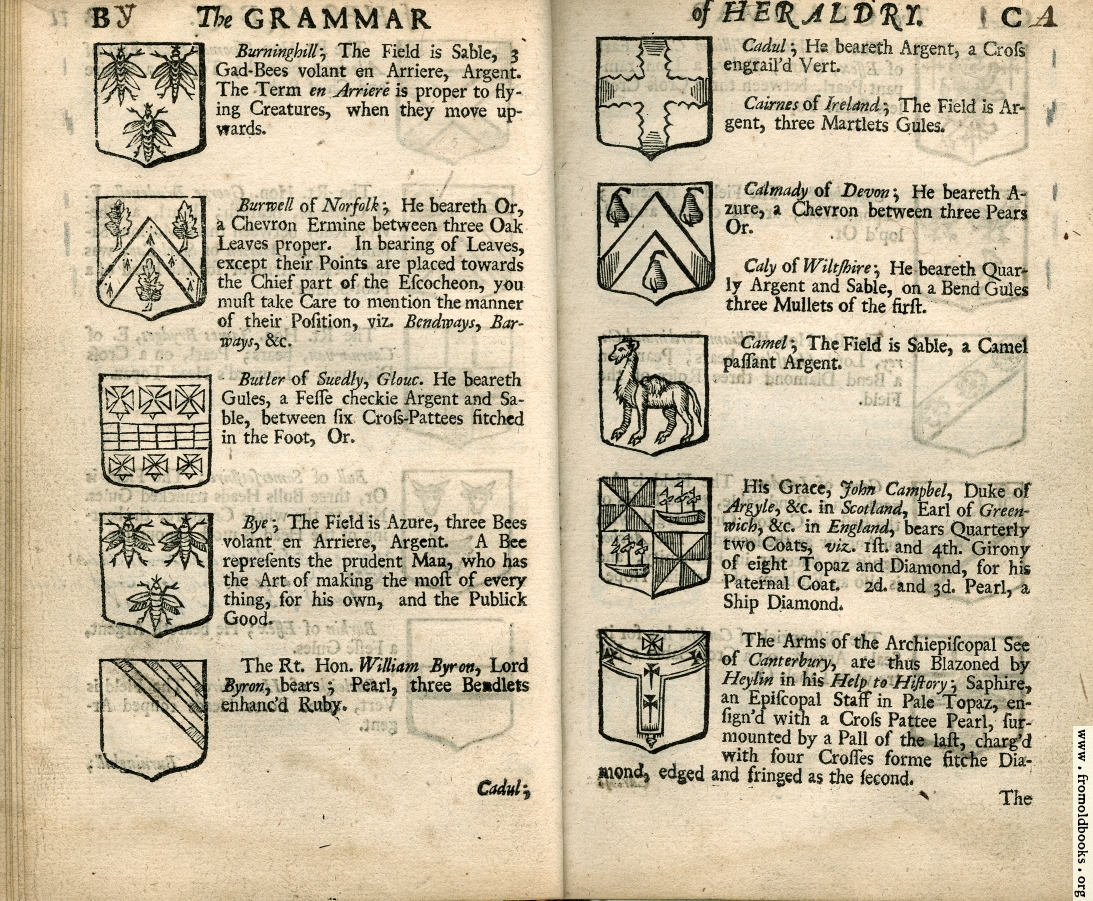 By The GRAMMAR
Burninghill; The Field is Sable, 3
Gad-Bees volant en Arriere, Argent.
The Term en Arriere is proper to fly-
ing Creatures, when they move up-
wards.
Burwell of Norfolk; He beareth Or,
a Chevron Ermine between three Oak
Leaves proper. In bearing of Leaves,
except their Points are placed towards
the Chief part of the Eſcocheon, you
muſt take Care to mention the manner
of their Poſition, viz. Bendways, Bar-
ways, &c.
Butler of Suedly, Glouc. He beareth
Gules, a Feſſe checkie Argent and Sa-
ble, between ſix Croſs-Pattees fitched
in the Foot, Or.
Bye; The Field is Azure, three Bees
volant en Arriere, Argent. A Bee
repreſents the prudent Man, who has
the Art of making the moſt of every
thing, for his own, and the Publick
Good.
The Rt. Hon. William Byron, Lord
Byron, bears; Pearl, three Bendlets
enhanc'd Ruby.
Cadul;
of HERALDRY. CA
Cadul; He beareth Argent, a Croſs
engrail'd Vert.
Cairnes of Ireland; The Field is Ar-
gent, three Martlets Gules.
Calmady of Devon; He beareth A-
zure, a Chevron between three Pears
Or.
Caly of Wiltſhire; He beareth Quar-
ly Argent and Sable, on a Bend Gules
three Mullets of the firſt.
Camel; The Field is Sable, a Camel
paſſant Argent.
His Grace, John Campbel, Duke of
Argyle, &c. in Scotland, Earl of Green-
wich, &c. in England, bears Quarterly
two Coats, viz. 1ſt. and 4th. Girony
of eight Topaz and Diamond, for his
Paternal Coat. 2d. and 3d. Pearl, a
Ship Diamond.
The Arms of the Archiepiſcopal See
of Canterbury, are thus Blazoned by
Heylin in his Help to Hiſtory; Saphire,
an Epiſcopal Staff in Pale Topaz, en-
ſign'd with a Croſs Pattee Pearl, ſur-
mounted by a Pall of the laſt, charg'd
with four Croſſes forme fitche Dia-
mond, edged and fringed as the ſecond.
The
www.fromoldbooks.org